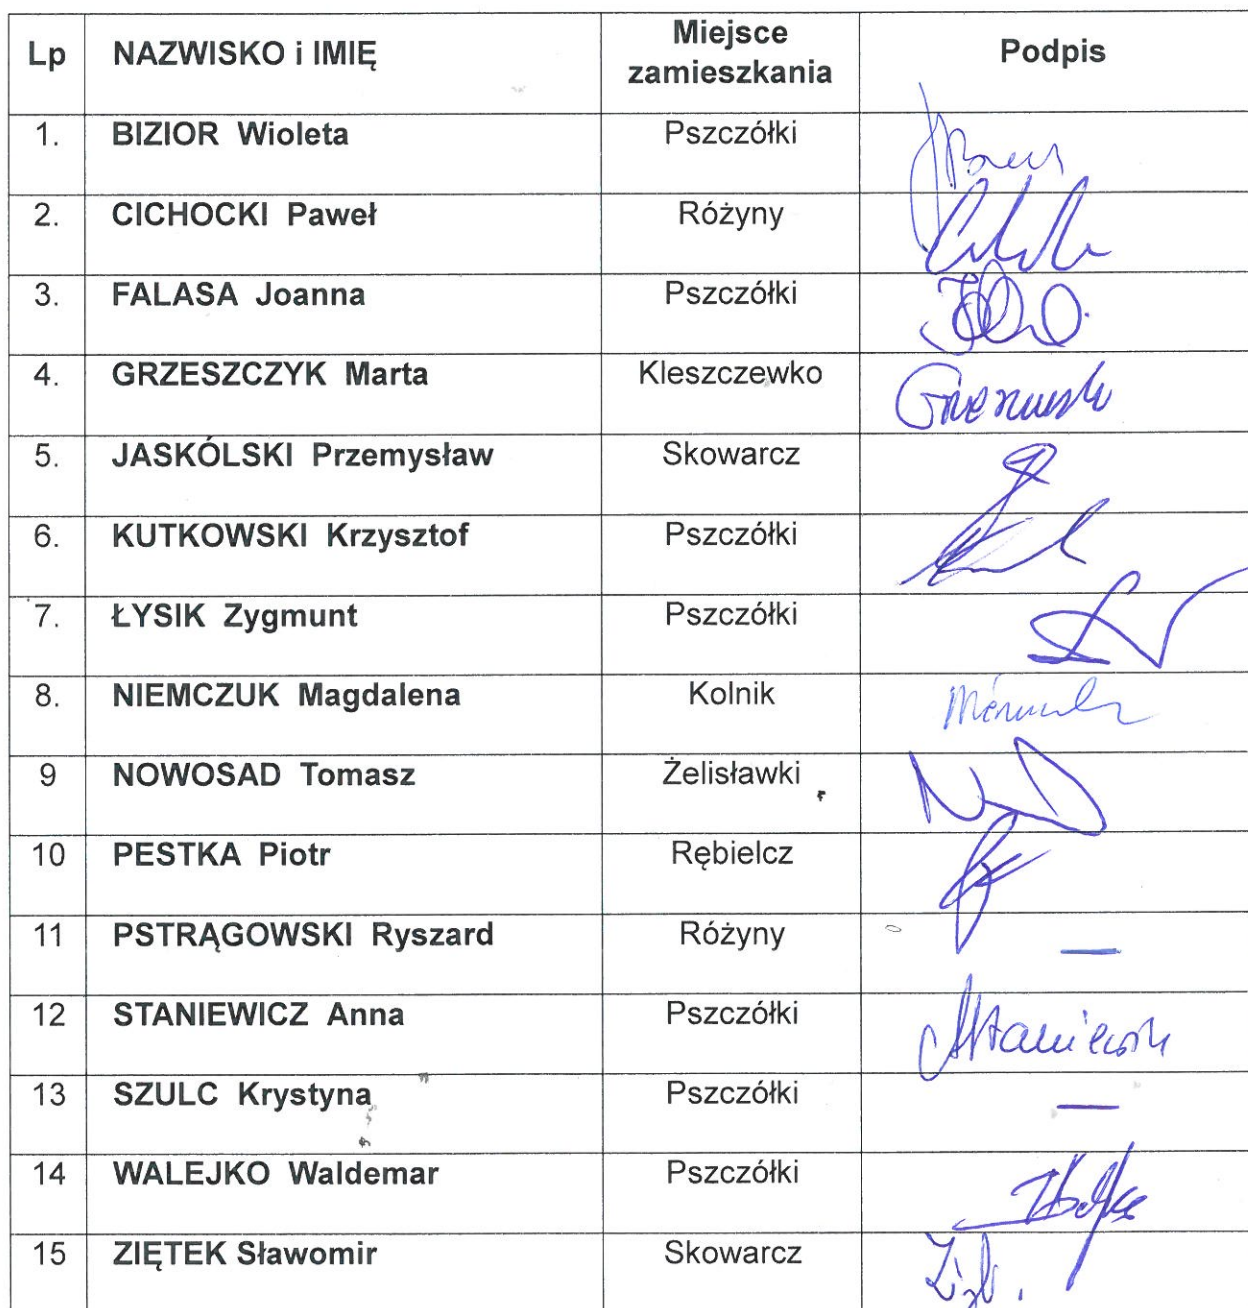 Lp NAZWISKO i IMIĘ Miejsce zamieszkania Podpis
1. BIZIOR Wioleta Pszczółki
2. CICHOCKI Paweł Różyny
3. FALASA Joanna Pszczółki
4. GRZESZCZYK Marta Kleszczewko
5. JASKÓLSKI Przemysław Skowarcz
6. KUTKOWSKI Krzysztof Pszczółki
7. ŁYSIK Zygmunt Pszczółki
8. NIEMCZUK Magdalena Kolnik
9 NOWOSAD Tomasz Żelisławki
10 PESTKA Piotr Rębielcz
11 PSTRĄGOWSKI Ryszard Różyny —
12 STANIEWICZ Anna Pszczółki
13 SZULC Krystyna Pszczółki —
14 WALEJKO Waldemar Pszczółki
15 ZIĘTEK Sławomir Skowarcz